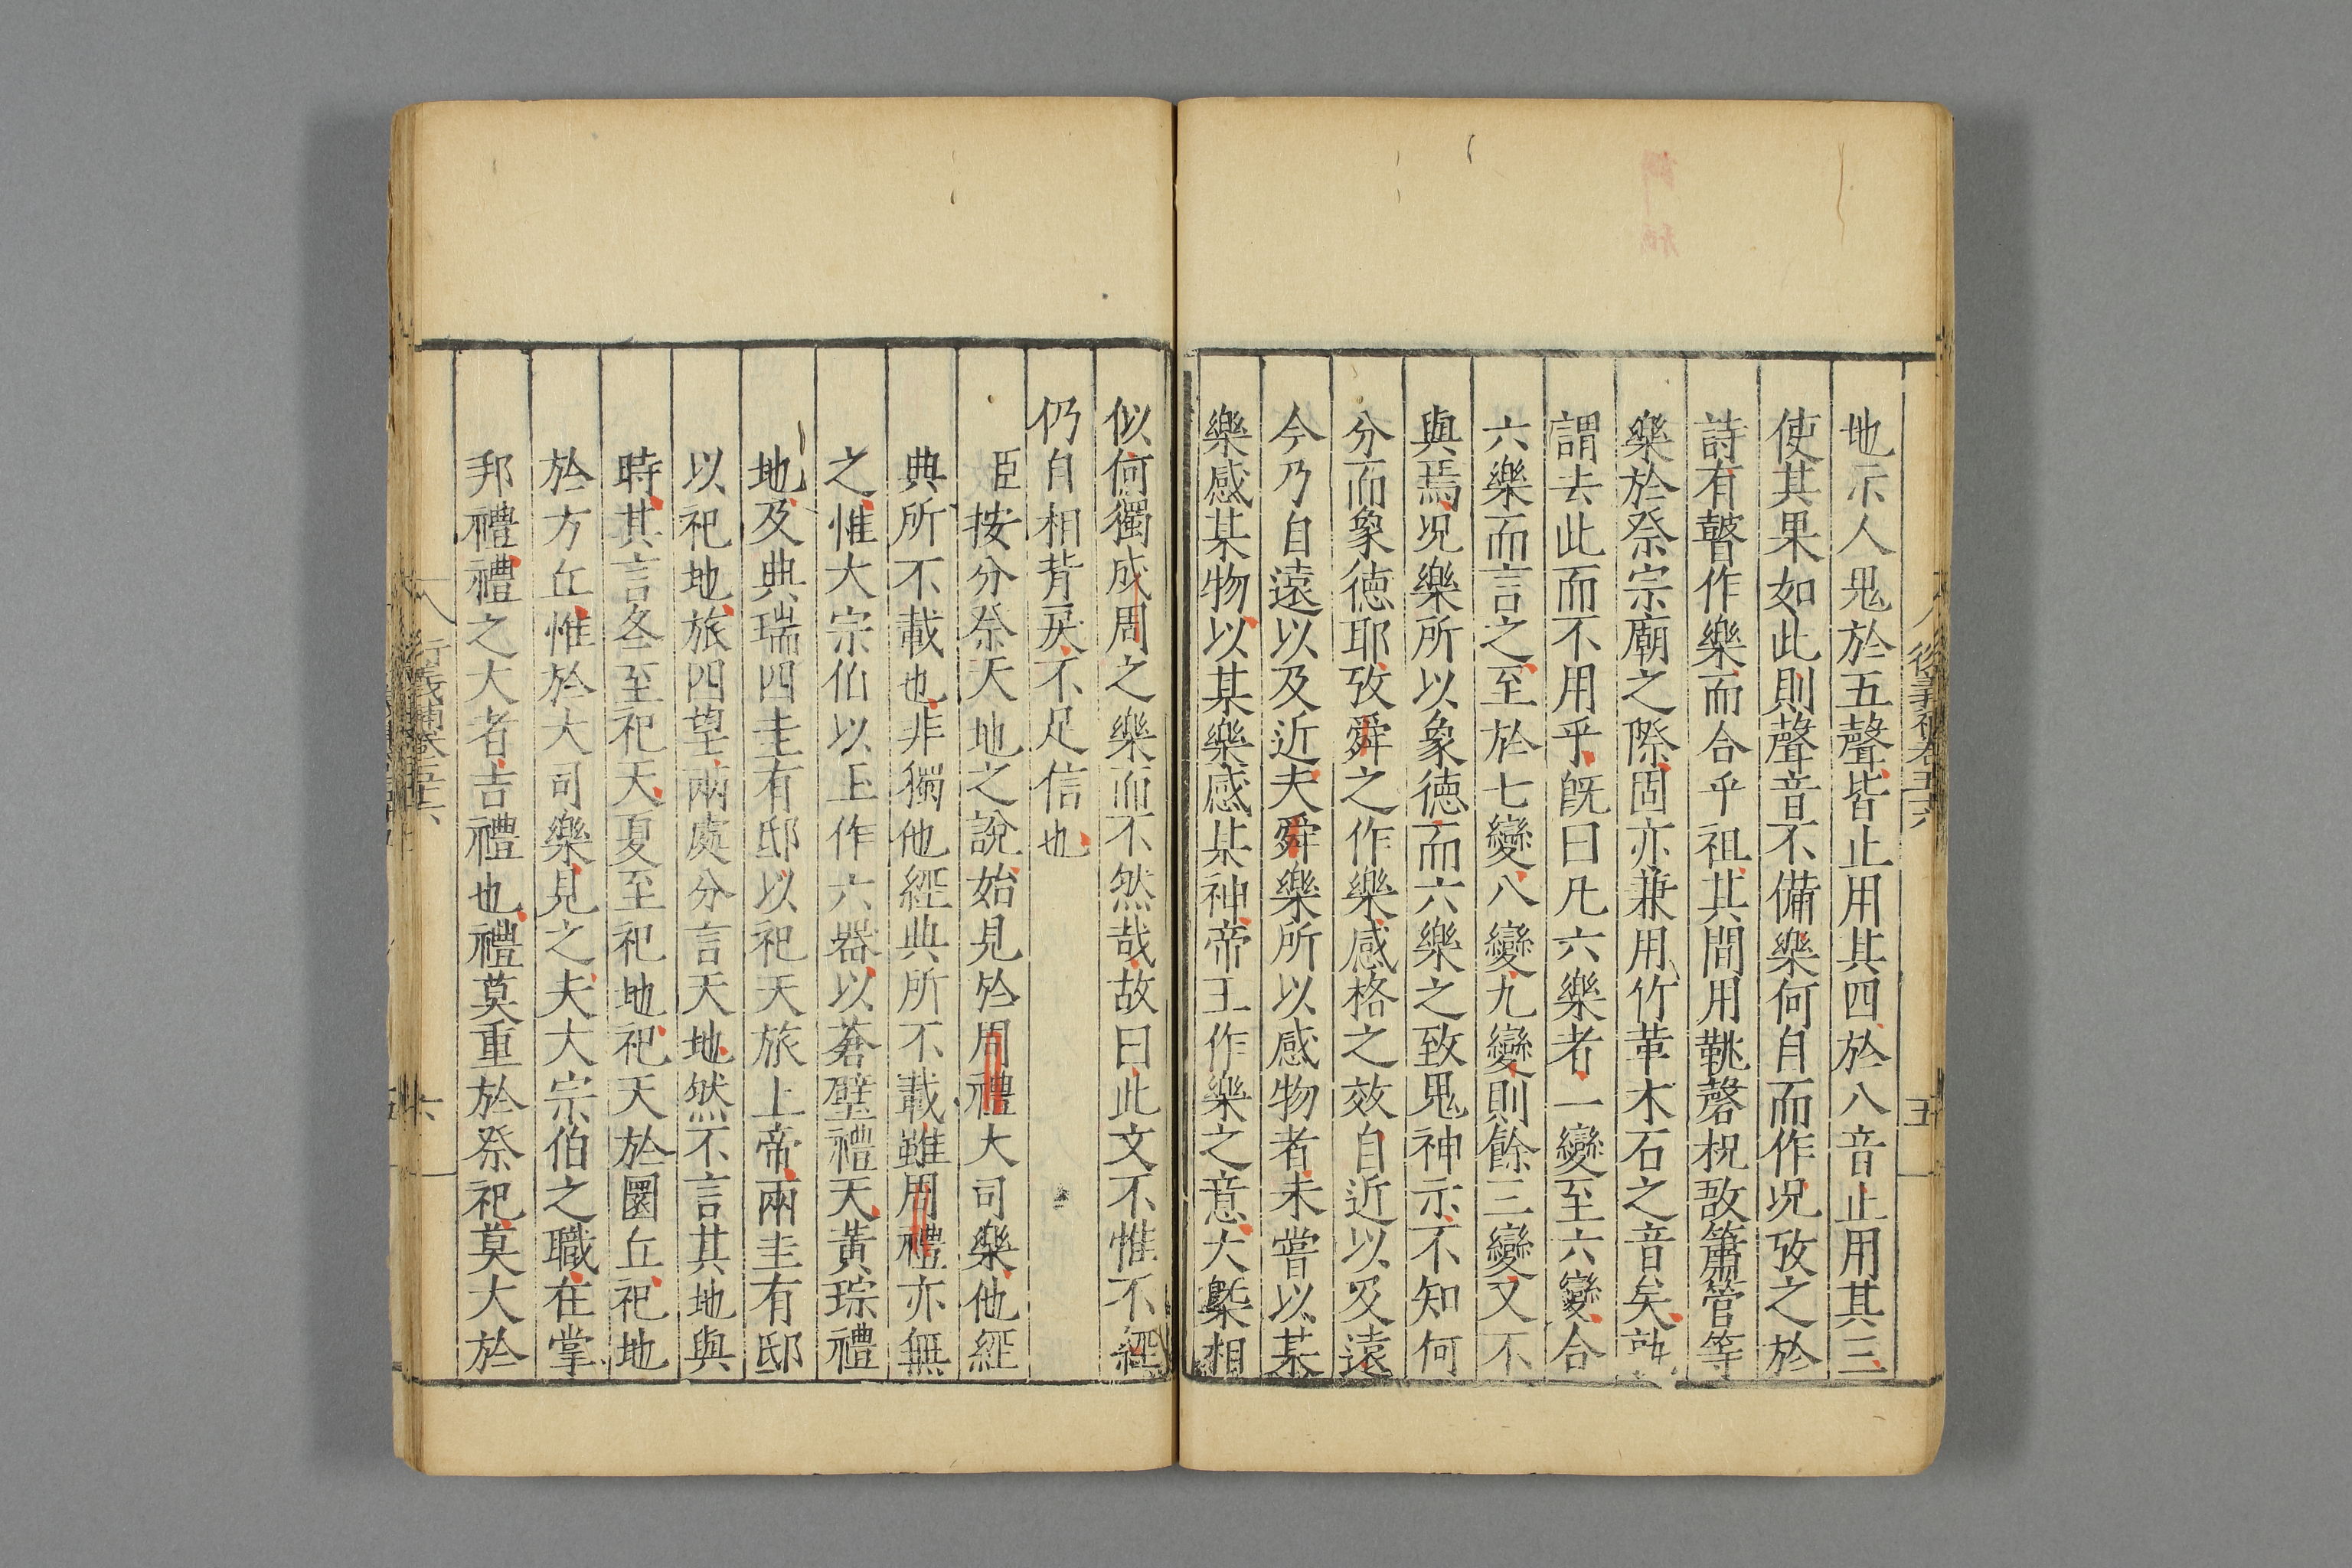 地示人鬼於五聲皆止用其四於八音止用其三
使其果如此則聲音不備樂何自而作況攷之於
詩有瞽作樂而合乎祖其間用鞉磬柷敔簫管等
樂於祭宗廟之際固亦兼用竹革木石之音矣
謂去此而不用乎旣曰凡六樂者一變至六變合
六樂而言之至於七變八變九變則餘三變又不
與焉況樂所以象德而六樂之致鬼神示不知何
分而象德耶攷舜之作樂感格之效自近以及遠
今乃自遠以及近夫舜樂所以感物者未嘗以某
樂感某物以某樂感某神帝王作樂之意大槩相
似何獨成周之樂而不然哉故曰此文不惟不經
仍自相背戾不足信也
臣按分祭天地之說始見於周禮大司樂他經
典所不載也非獨他經典所不載雖周禮亦無
之惟大宗伯以玉作六器以蒼璧禮天黃琮禮
地及典瑞四圭有邸以祀天旅上帝兩圭有邸
以祀地旅四望兩處分言天地然不言其地與
時其言冬至祀天夏至祀地祀天於圜丘祀地
於方丘惟於大司樂見之夫大宗伯之職在掌
邦禮禮之大者吉禮也禮莫重於祭祀莫大於
五
六